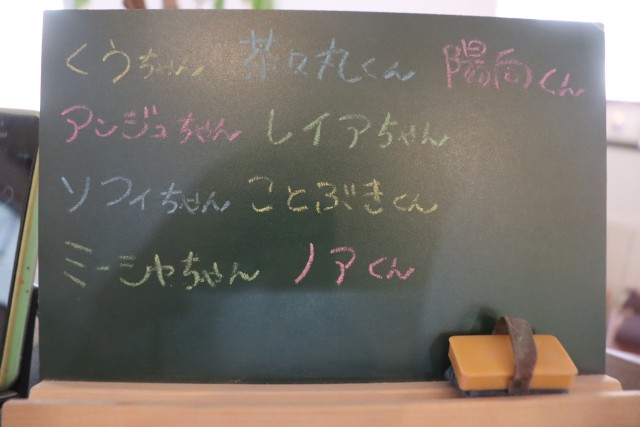 くうちゃん 茶々丸くん 陽向くん
アンジュちゃん レイアちゃん
ソフィちゃん ことぶきくん
ミーシャちゃん ノアくん